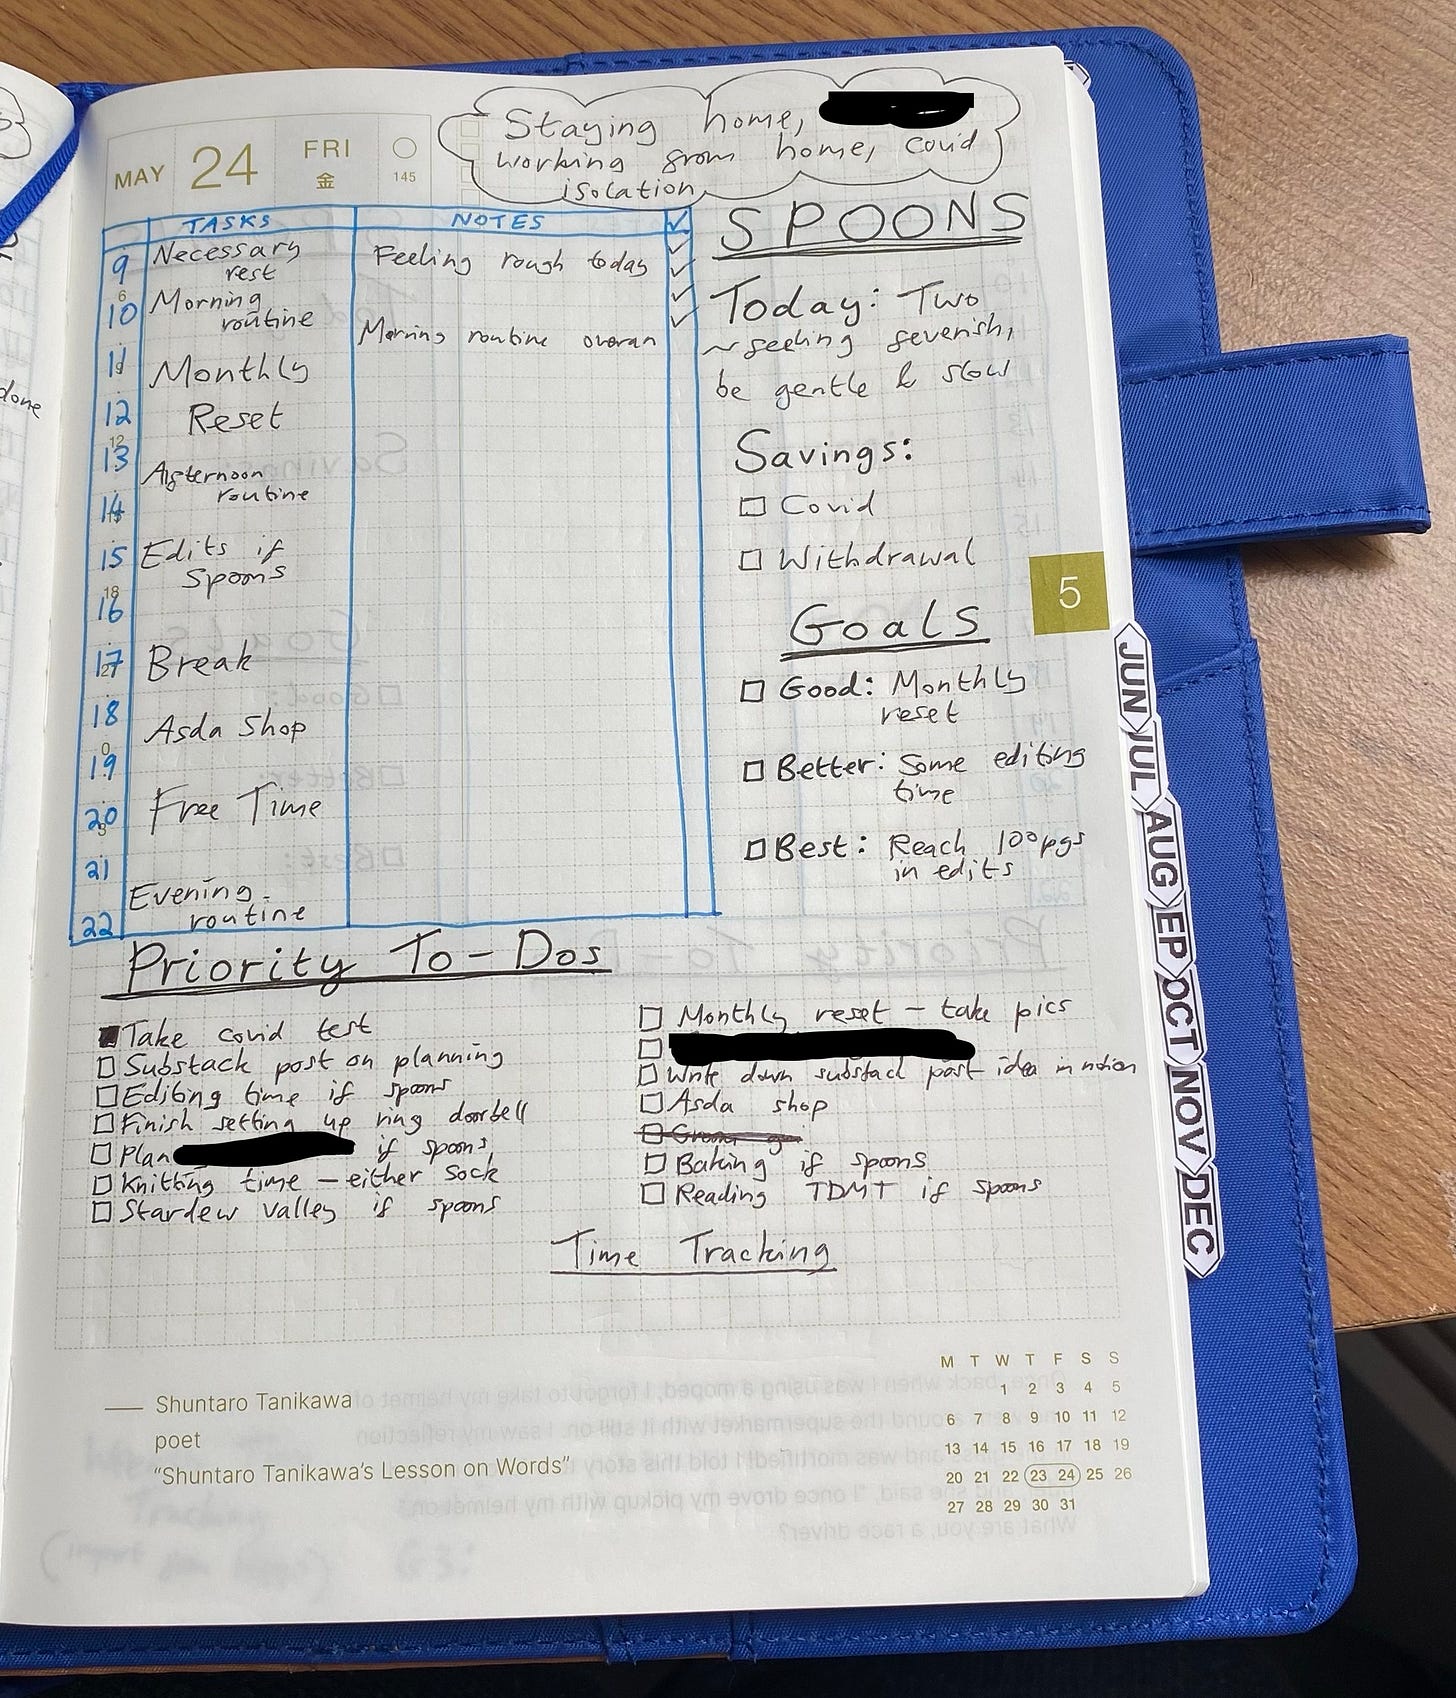 MAY 24 FRI
金 145
Staying home,
working from home, covid
isolation
TASKS NOTES ✓
9 Necessary
rest
Feeling rough today ✓
✓
6
10 Morning
routine
✓
✓
Morning routine overan
11 Monthly
12 Reset
12
13 Afternoon
routine
14
15 Edits if
Spoons
18
16
17 Break
18 Asda shop
0
19
20 Free Time
21
Evening
22 routine
SPOONS
Today: Two
~feeling feverish,
be gentle & slow
Savings:
☐ Covid
☐ Withdrawal
5
Goals
☐ Good: Monthly
reset
☐ Better: Some editing
time
☐ Best: Reach 100pgs
in edits
Priority To-Dos
■ Take covid test
☐ Substack post on planning
☐ Editing time if spoons
☐ Finish setting up ring doorbell
☐ Plan if spoons
☐ Knitting time – either sock
☐ Stardew valley if spoons
☐ Monthly reset – take pics
☐
☐ Write down substack post idea in notion
☐ Asda shop
☐ Baking if spoons
☐ Reading TDMT if spoons
Time Tracking
—— Shuntaro Tanikawa
poet
“Shuntaro Tanikawa’s Lesson on Words”
M T W T F S S
1 2 3 4 5
6 7 8 9 10 11 12
13 14 15 16 17 18 19
20 21 22 23 24 25 26
27 28 29 30 31
JUN
JUL
AUG
EP
OCT
NOV
DEC
done